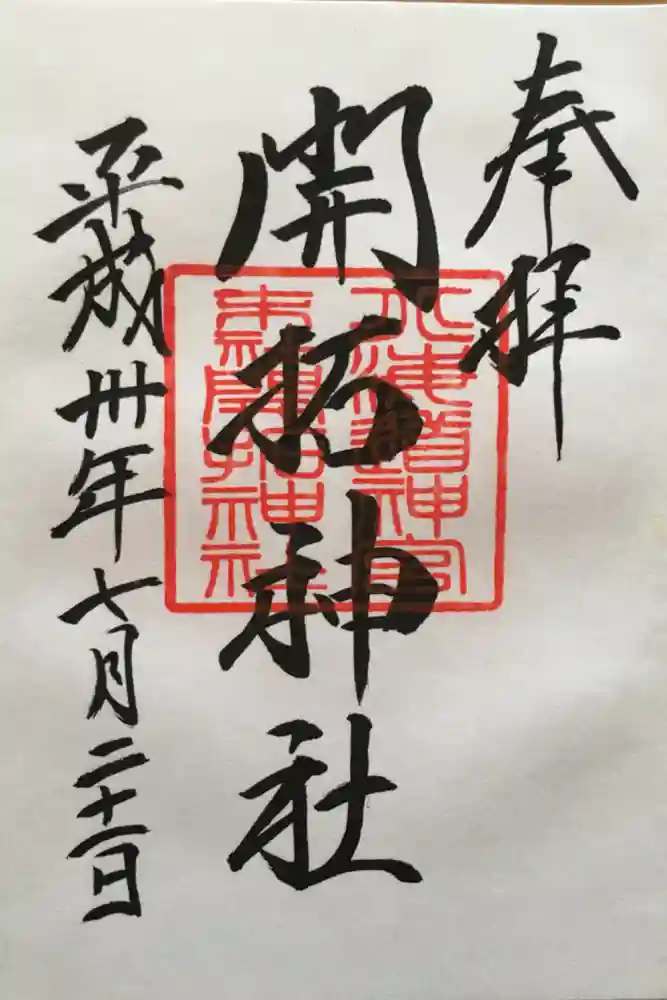 奉拝
開拓神社
北海道神宮
末社開拓神社
平成卅年七月二十一日